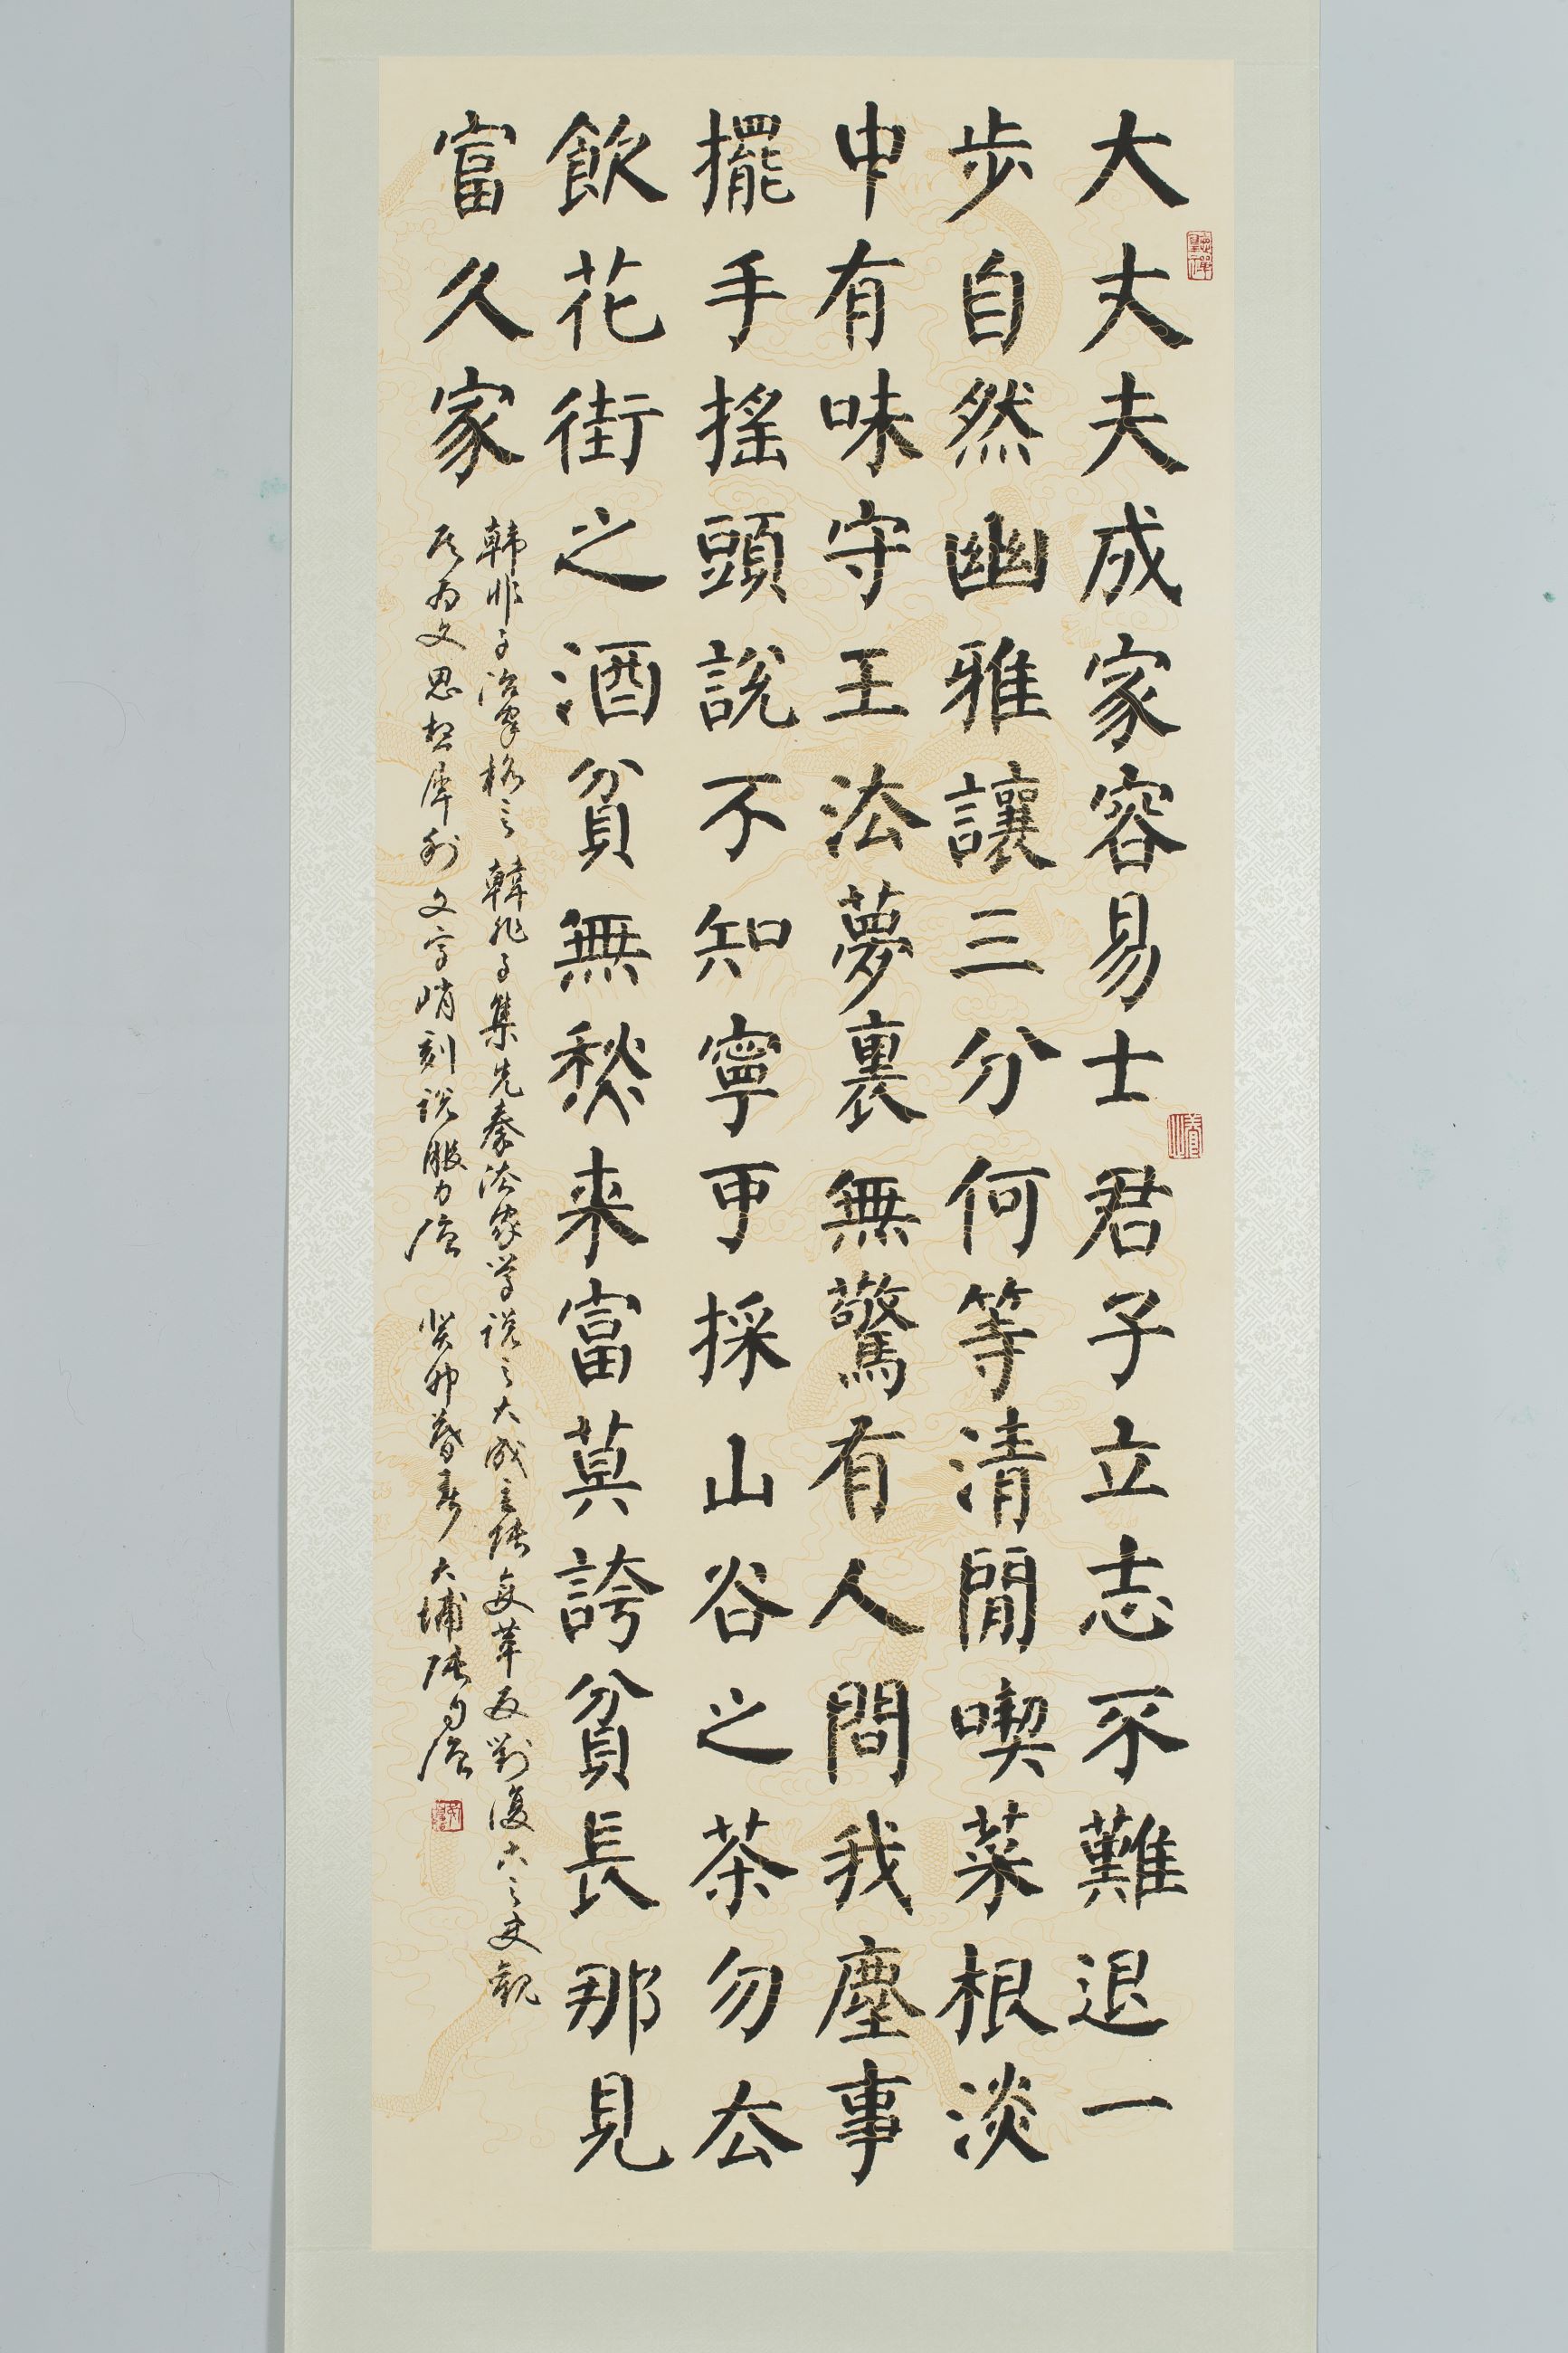 大丈夫成家容易士君子立志不難退一
步自然幽雅讓三分何等清閒喫菜根淡
中有味守王法夢裏無驚有人問我塵事
擺手搖頭說不知寧可採山谷之茶勿厺
飲花街之酒貧無愁来富莫誇貧長那見
富久家
韩非子治家格言 韓非子集先秦法家学说之大成主张变革反對復古之史观
其为文思想犀利文字峭刻说服力强 癸卯暮春 大埔张